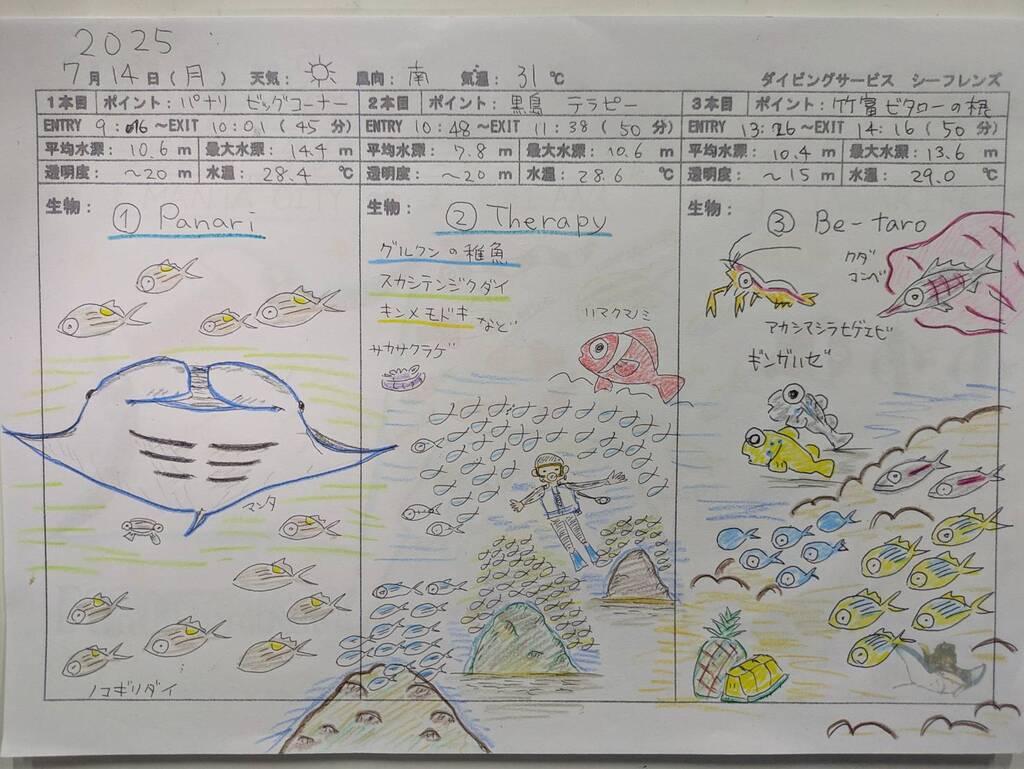 2025
7月14日(月) 天気: 風向: 南 気温: 31℃
ダイビングサービス シーフレンズ
1本目 ポイント: パナリ ビッグコーナー
ENTRY 9:16~EXIT 10:01(45分)
平均水深: 10.6m 最大水深: 14.4m
透明度: ~20m 水温: 28.4℃
生物:
① Panari
マンタ
ノコギリダイ
2本目 ポイント: 黒島 テラピー
ENTRY 10:48~EXIT 11:38(50分)
平均水深: 7.8m 最大水深: 10.6m
透明度: ~20m 水温: 28.6℃
生物:
② Therapy
グルクンの稚魚
スカシテンジクダイ
キンメモドキ など
サカサクラゲ
ハマクマノミ
3本目 ポイント: 竹富ビタローの根
ENTRY 13:26~EXIT 14:16(50分)
平均水深: 10.4m 最大水深: 13.6m
透明度: ~15m 水温: 29.0℃
生物:
③ Be-taro
クダ
コンベ
アカシマシラヒゲエビ
ギンガハゼ